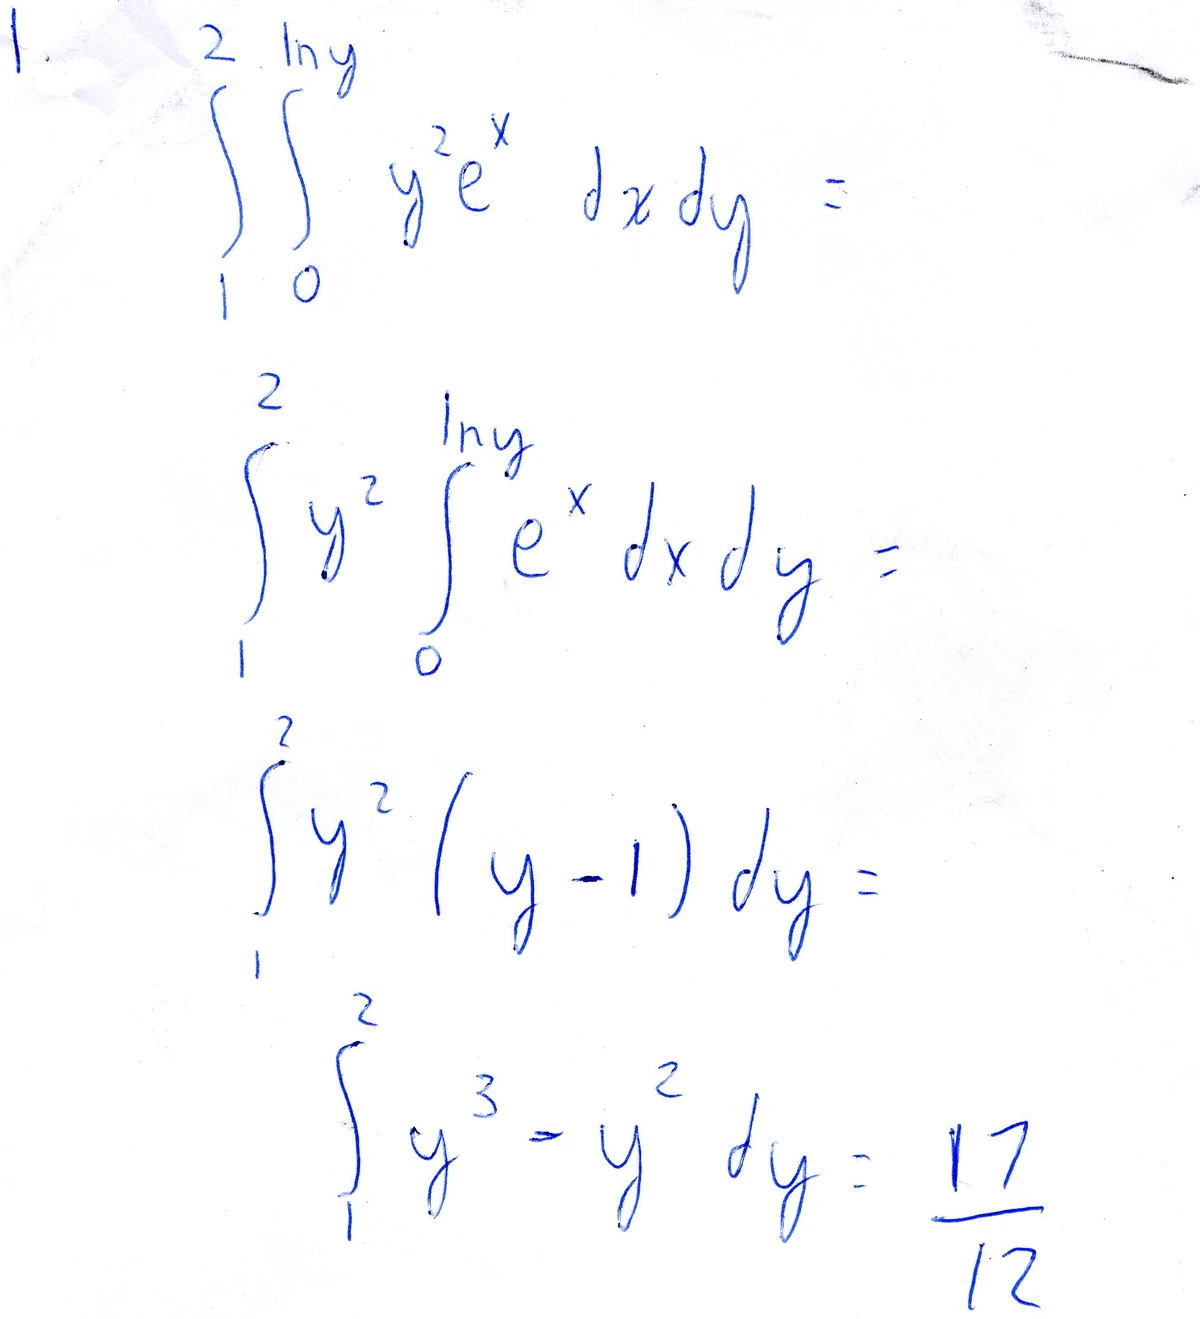 1. ∫₁² ∫₀^{ln y} y² eˣ dx dy =
∫₁² y² ∫₀^{ln y} eˣ dx dy =
∫₁² y² (y - 1) dy =
∫₁² y³ - y² dy = 17/12